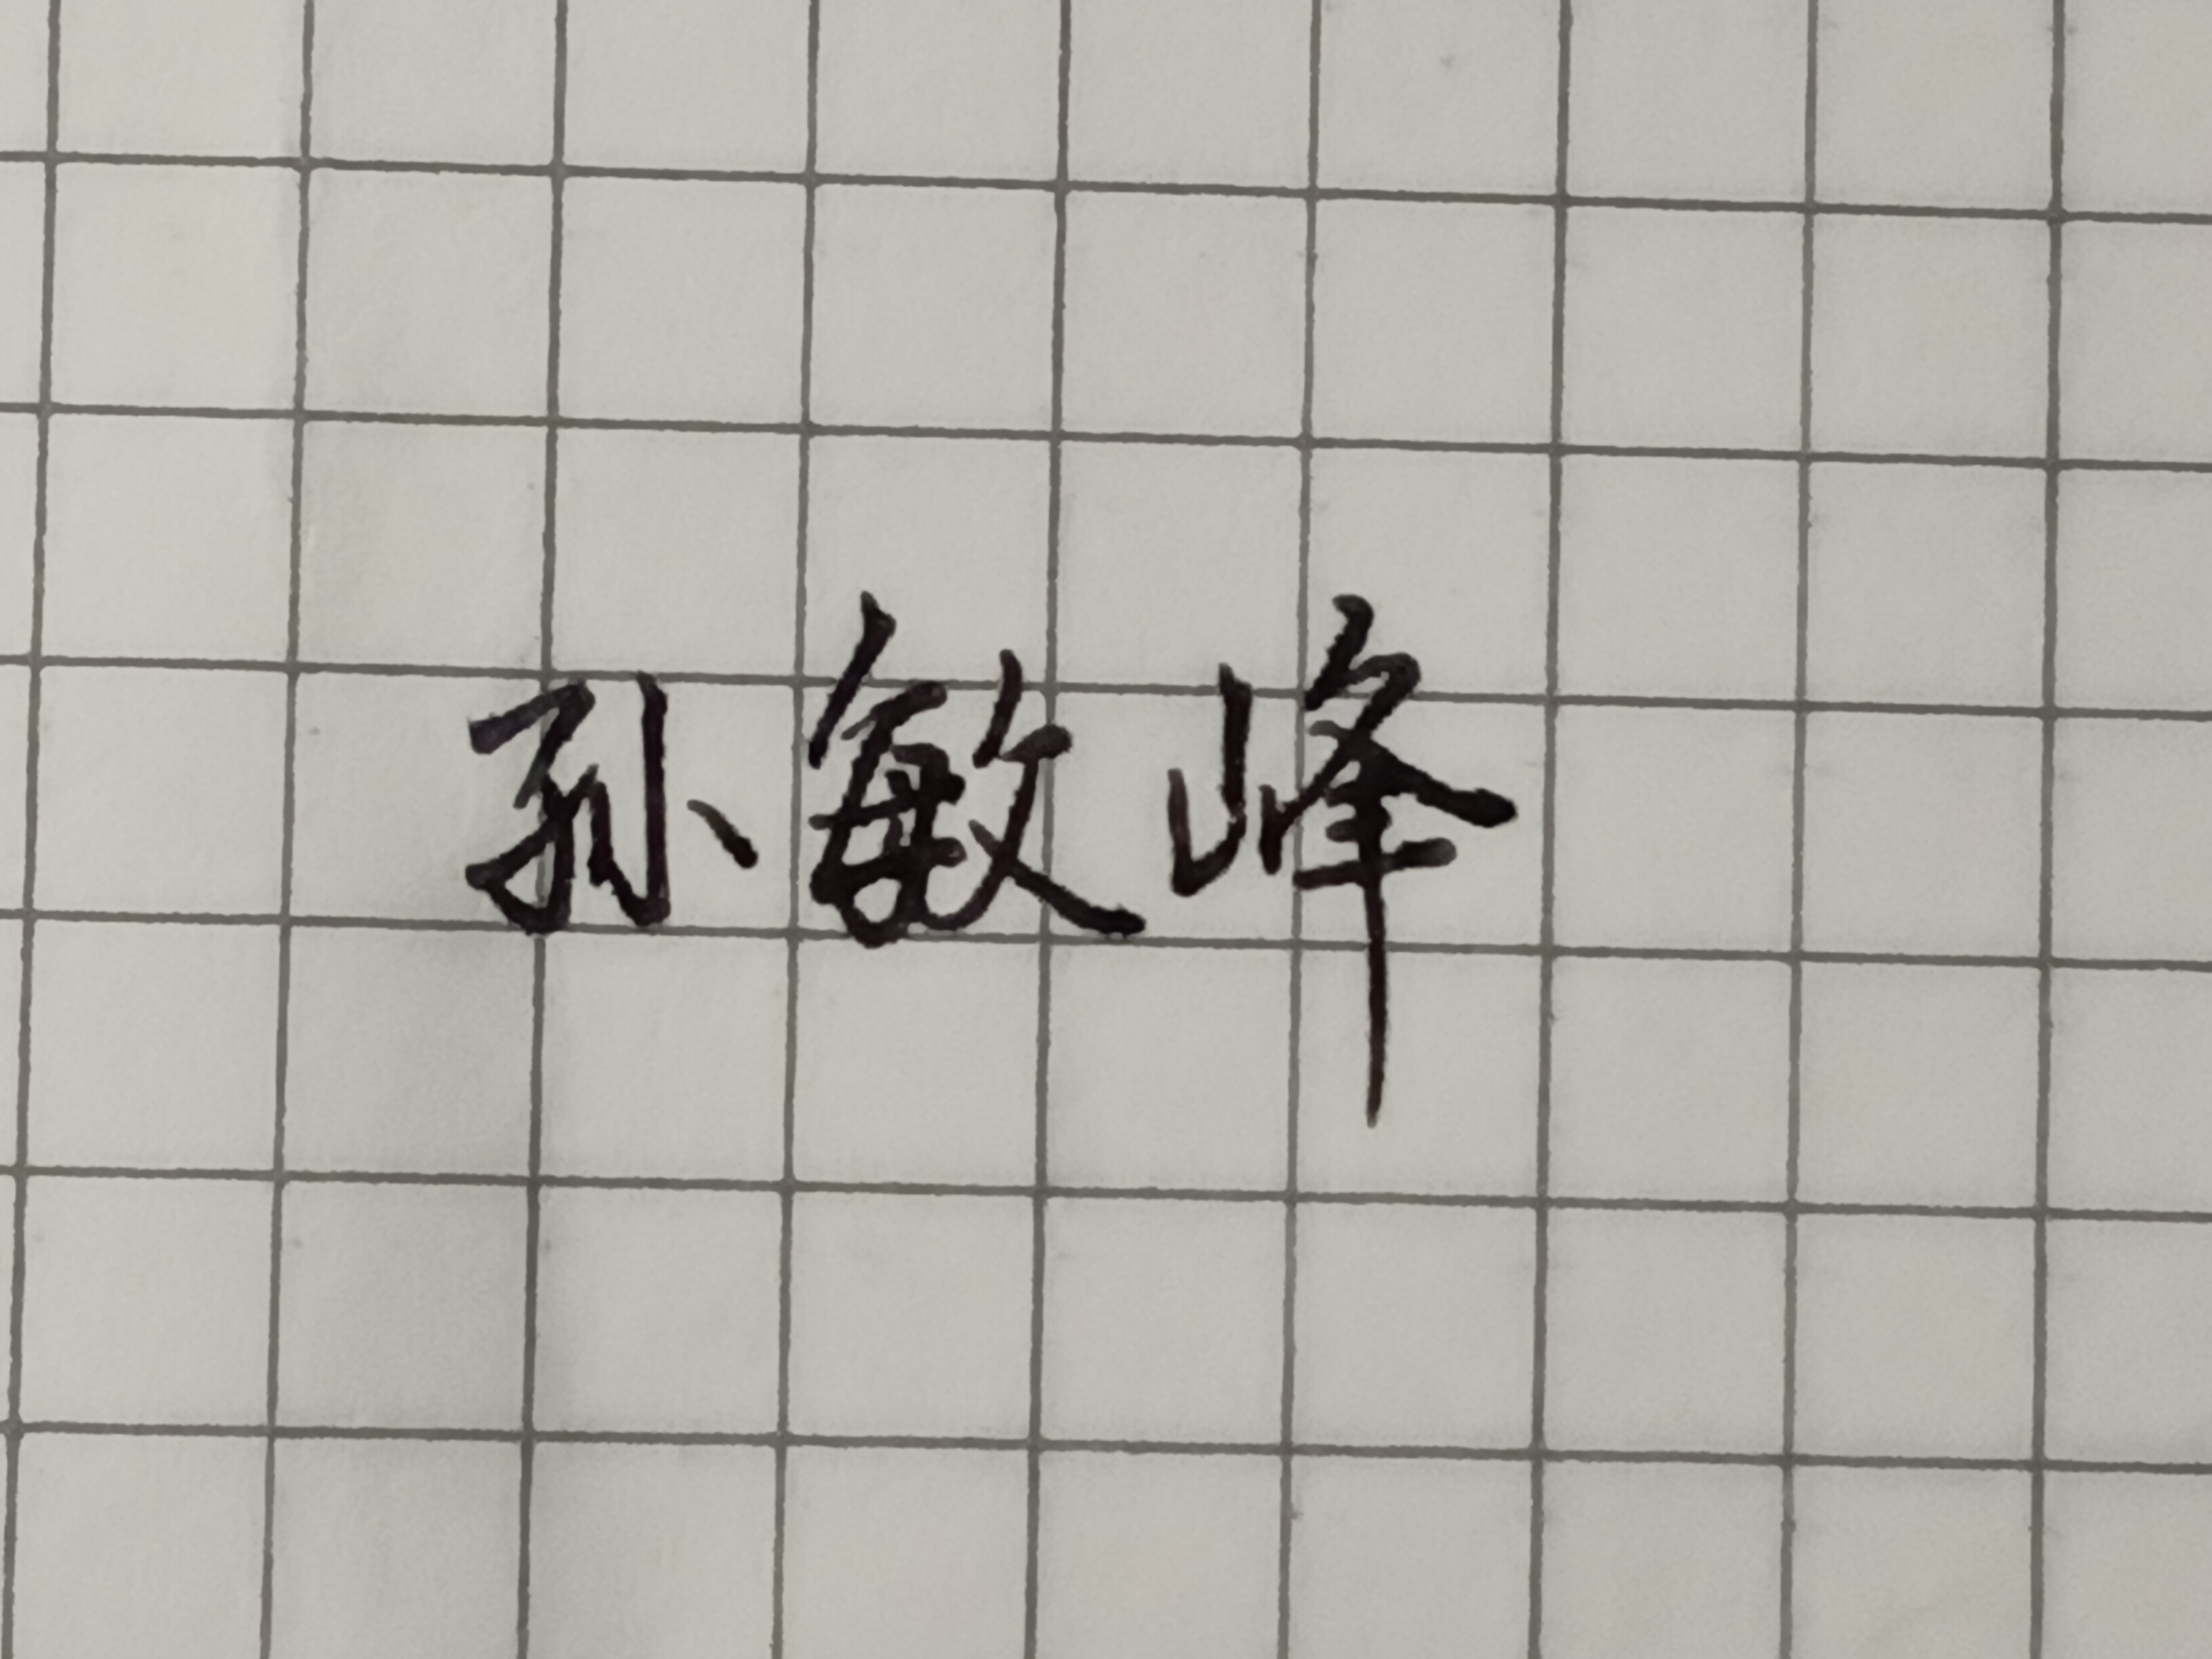 孙敏峰